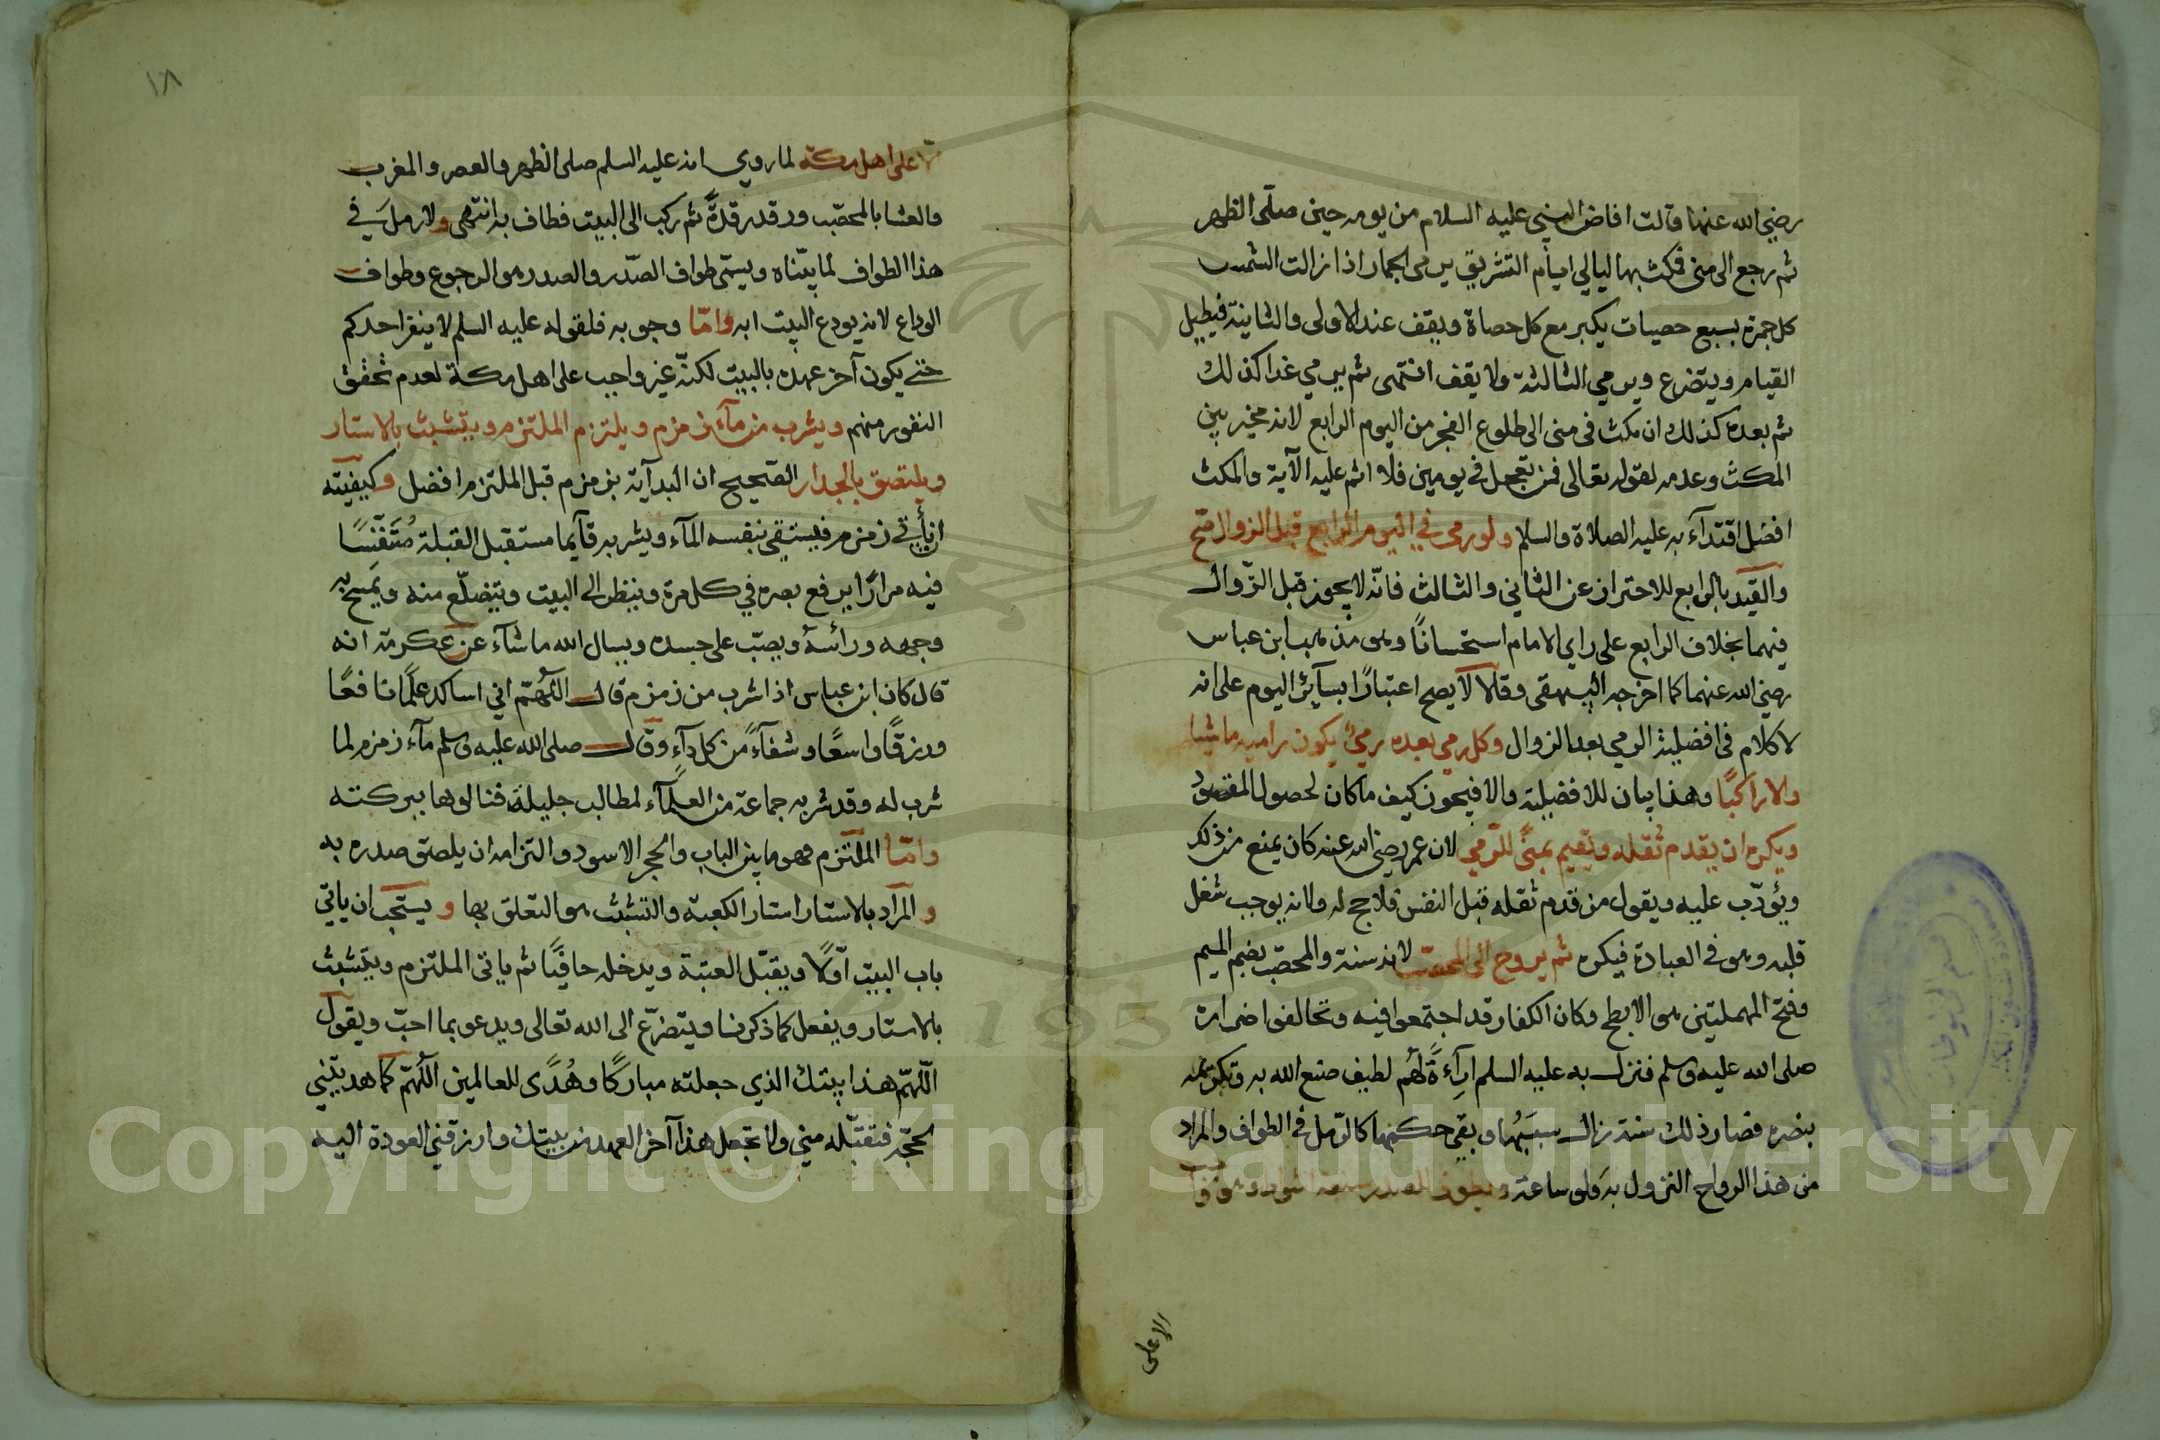 رضي الله عنها قالت افاض النبي عليه السلام من يومه حين صلى الظهر
ثم رجع الى منى فمكث بها ليالي ايام التشريق يرمي الجمار اذا زالت الشمس
كل جمرة بسبع حصيات يكبر مع كل حصاة ويقف عند الاولى والثانية فيطيل
القيام ويتضرع ويرمي الثالثة ولا يقف انتهى ثم يرمي غدا كذلك
ثم بعده كذلك ان مكث في منى الى طلوع الفجر من اليوم الرابع لانه مخير بين
المكث وعدمه لقوله تعالى فمن تعجل في يومين فلا اثم عليه الآية والمكث
افضل اقتدآء به عليه الصلاة والسلام ولو رمى في اليوم الرابع قبل الزوال صح
والقيد بالرابع للاحتراز عن الثاني والثالث فانّه لا يجوز قبل الزّوال
فيهما بخلاف الرابع على راي الامام استحسانًا وهو مذهب ابن عباس
رضي الله عنهما كما اخرجه البيهقي وقالا لا يصح اعتبارًا بسآئر اليوم على انه
لا كلام في افضلية الرمي بعد الزوال وكل رمي بعده رمي يكون راميه ماشيا
والا راكبًا وهذا بيان للافضلية والا فيجوز كيف ما كان لحصول المقصود
ويكره ان يقدم ثقله ويقيم بمنى للرّمي لان عمر رضي الله عنه كان يمنع من ذلك
ويؤدّب عليه ويقول من قدم ثقله قبل النفر فلا حج له ولانه يوجب شغل
قلبه وهو في العبادة فيكره ثم يروح الى المحصب لانه سنة والمحصّب بضم الميم
وفتح المهملتين هو الابطح وكان الكفار قد اجتمعوا فيه وتحالفوا اضراره
صلى الله عليه وسلم فنزل به عليه السلم ارآءةً لهم لطيف صنع الله به وتكريمه
بنصره فصار ذلك سنة زال سببها وبقي حكمها كالرّمل في الطواف والمراد
من هذا الرواح النزول به ولو ساعة ويطوف للصدر سبعة اشواط وهو
الا على
١٨
الا على اهل مكة لما روي انه عليه السلم صلى الظهر والعصر والمغرب
والعشا بالمحصّب ورقد رقدةً ثم ركب الى البيت فطاف به انتهى ولا رمل في
هذا الطواف لما بيّناه ويسمّى طواف الصّدر والصدر هو الرجوع وطواف
الوداع لانه يودع البيت به وامّا وجوبه فلقوله عليه السلم لا ينفر احدكم
حتى يكون آخر عهده بالبيت لكنّه غير واجب على اهل مكة لعدم تحقق
النفور منهم ويشرب من مآء زمزم ويلتزم الملتزم ويتشبث بالاستار
ويلتصق بالجدار الصّحيح ان البدآية بزمزم قبل الملتزم افضل وكيفيته
ان يأتي زمزم فيستقي بنفسه المآء ويشربه قآيما مستقبل القبلة مُتَنَفّسًا
فيه مرارًا يرفع بصره في كل مرة وينظر الى البيت ويتضلّع منه ويمسح به
وجهه ورائسه ويصبّ على جسده ويسال الله ما شآء عن عكرمة انه
قال كان ابن عباس اذا شرب من زمزم قال اللّهمّ اني اسالك علمًا نافعًا
ورزقًا واسعًا وشفآءً من كل دآءٍ وقال صلى الله عليه وسلم مآء زمزم لما
شرب له وقد شربه جماعة من العلمآء لمطالب جليلة فنالوها ببركته
وامّا الملتزم فهو ما بين الباب والحجر الاسود والتزامه ان يلصق صدره به
والمراد بالاستار استار الكعبة والتشبث هو التعلق بها ويستحب ان ياتي
باب البيت اوّلًا ويقبّل العتبة ويدخله حافيًا ثم ياتي الملتزم ويتشبث
بالاستار ويفعل كما ذكرنا ويتضرّع الى الله تعالى ويدعو بما احبّ ويقول
اللّهمّ هذا بيتك الذي جعلته مباركًا وهُدًى للعالمين اللّهمّ كما هديتني
لحجّه فتقبّله مني ولا تجعل هذا آخر العهد من بيتك وارزقني العودة اليه
Copyright © King Saud University
1957